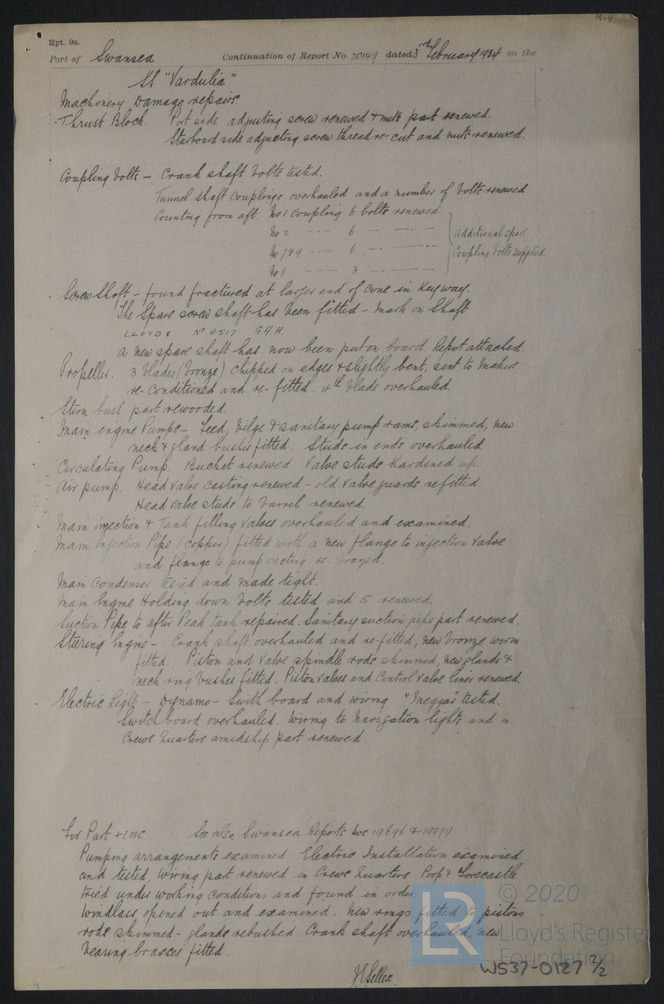 R.9
Rpt. 9a.
Port of Swansea Continuation of Report No. 20149 dated 3rd February 1934 on the
SS "Vardulia"
Machinery Damage repairs
Thrust Block. Port side adjusting screw renewed & nuts part renewed.
Starboard side adjusting screw thread re-cut and nuts renewed.
Coupling bolts – Crank shaft bolts tested.
Tunnel shaft couplings overhauled and a number of bolts renewed
Counting from aft. No 1 coupling 6 bolts renewed
No 2 --- 6 --- additional spare
No 7&9 --- 6 --- Coupling bolts supplied
No 8 --- 3 ---
Screw Shaft – found fractured at larger end of cone in Keyway.
The Spare screw shaft has been fitted – mark on Shaft
LLOYDS No 4517 G.G.H.
A new spare shaft has now been put on board Report attached.
Propeller. 3 blades (bronze) chipped on edges & slightly bent, sent to Makers
re-conditioned and re-fitted. 4th blade overhauled.
Stern bush part rewooded.
Main engine Pumps – Feed, bilge & sanitary pump rams, skimmed, new
neck & gland bushes fitted. Studs in ends overhauled.
Circulating Pump. Bucket renewed. Valve studs hardened up.
Air pump. Head valve casting renewed – old valve guards refitted
Head valve studs to barrel renewed.
Main injection & Tank filling valves overhauled and examined.
Main injection Pipe (copper) fitted with a new flange to injection valve
and flange to pump re-brazed.
Main Condenser tested and made tight.
Main Engine Holding down bolts tested and 5 renewed.
Suction Pipe to after Peak tank repaired. Sanitary suction pipe part renewed.
Steering Engine – Crank shaft overhauled and re-fitted, new bronze worm
fitted. Piston and valve spindle rods skimmed, new glands &
neck ring bushes fitted. Piston valves and Control valve liners renewed.
Electric Light – Dynamo – Swith board and wiring "Megga" tested.
Switch board overhauled. Wiring to Navigation lights and in
Crews Quarters amidship part renewed
For Part + LMC See also Swansea Reports Nos 19696 & 19779
Pumping arrangements examined Electric Installation examined
and tested, wiring part renewed in Crews Quarters Poop & Forecastle
tried under working conditions and found in order
Windlass opened out and examined. New rings fitted to pistons
rods skimmed – glands rebushed. Crank shaft overhauled, new
bearing brasses fitted.
LR
© 2020
Lloyd's Register
Foundation
WS37-0127 2/2